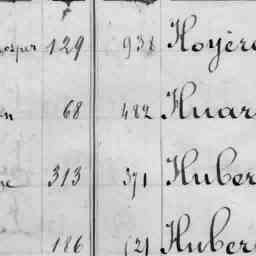 osper 129 938 Hoyère
en 68 482 Huar
se 313 371 Huber
186 121 Huber